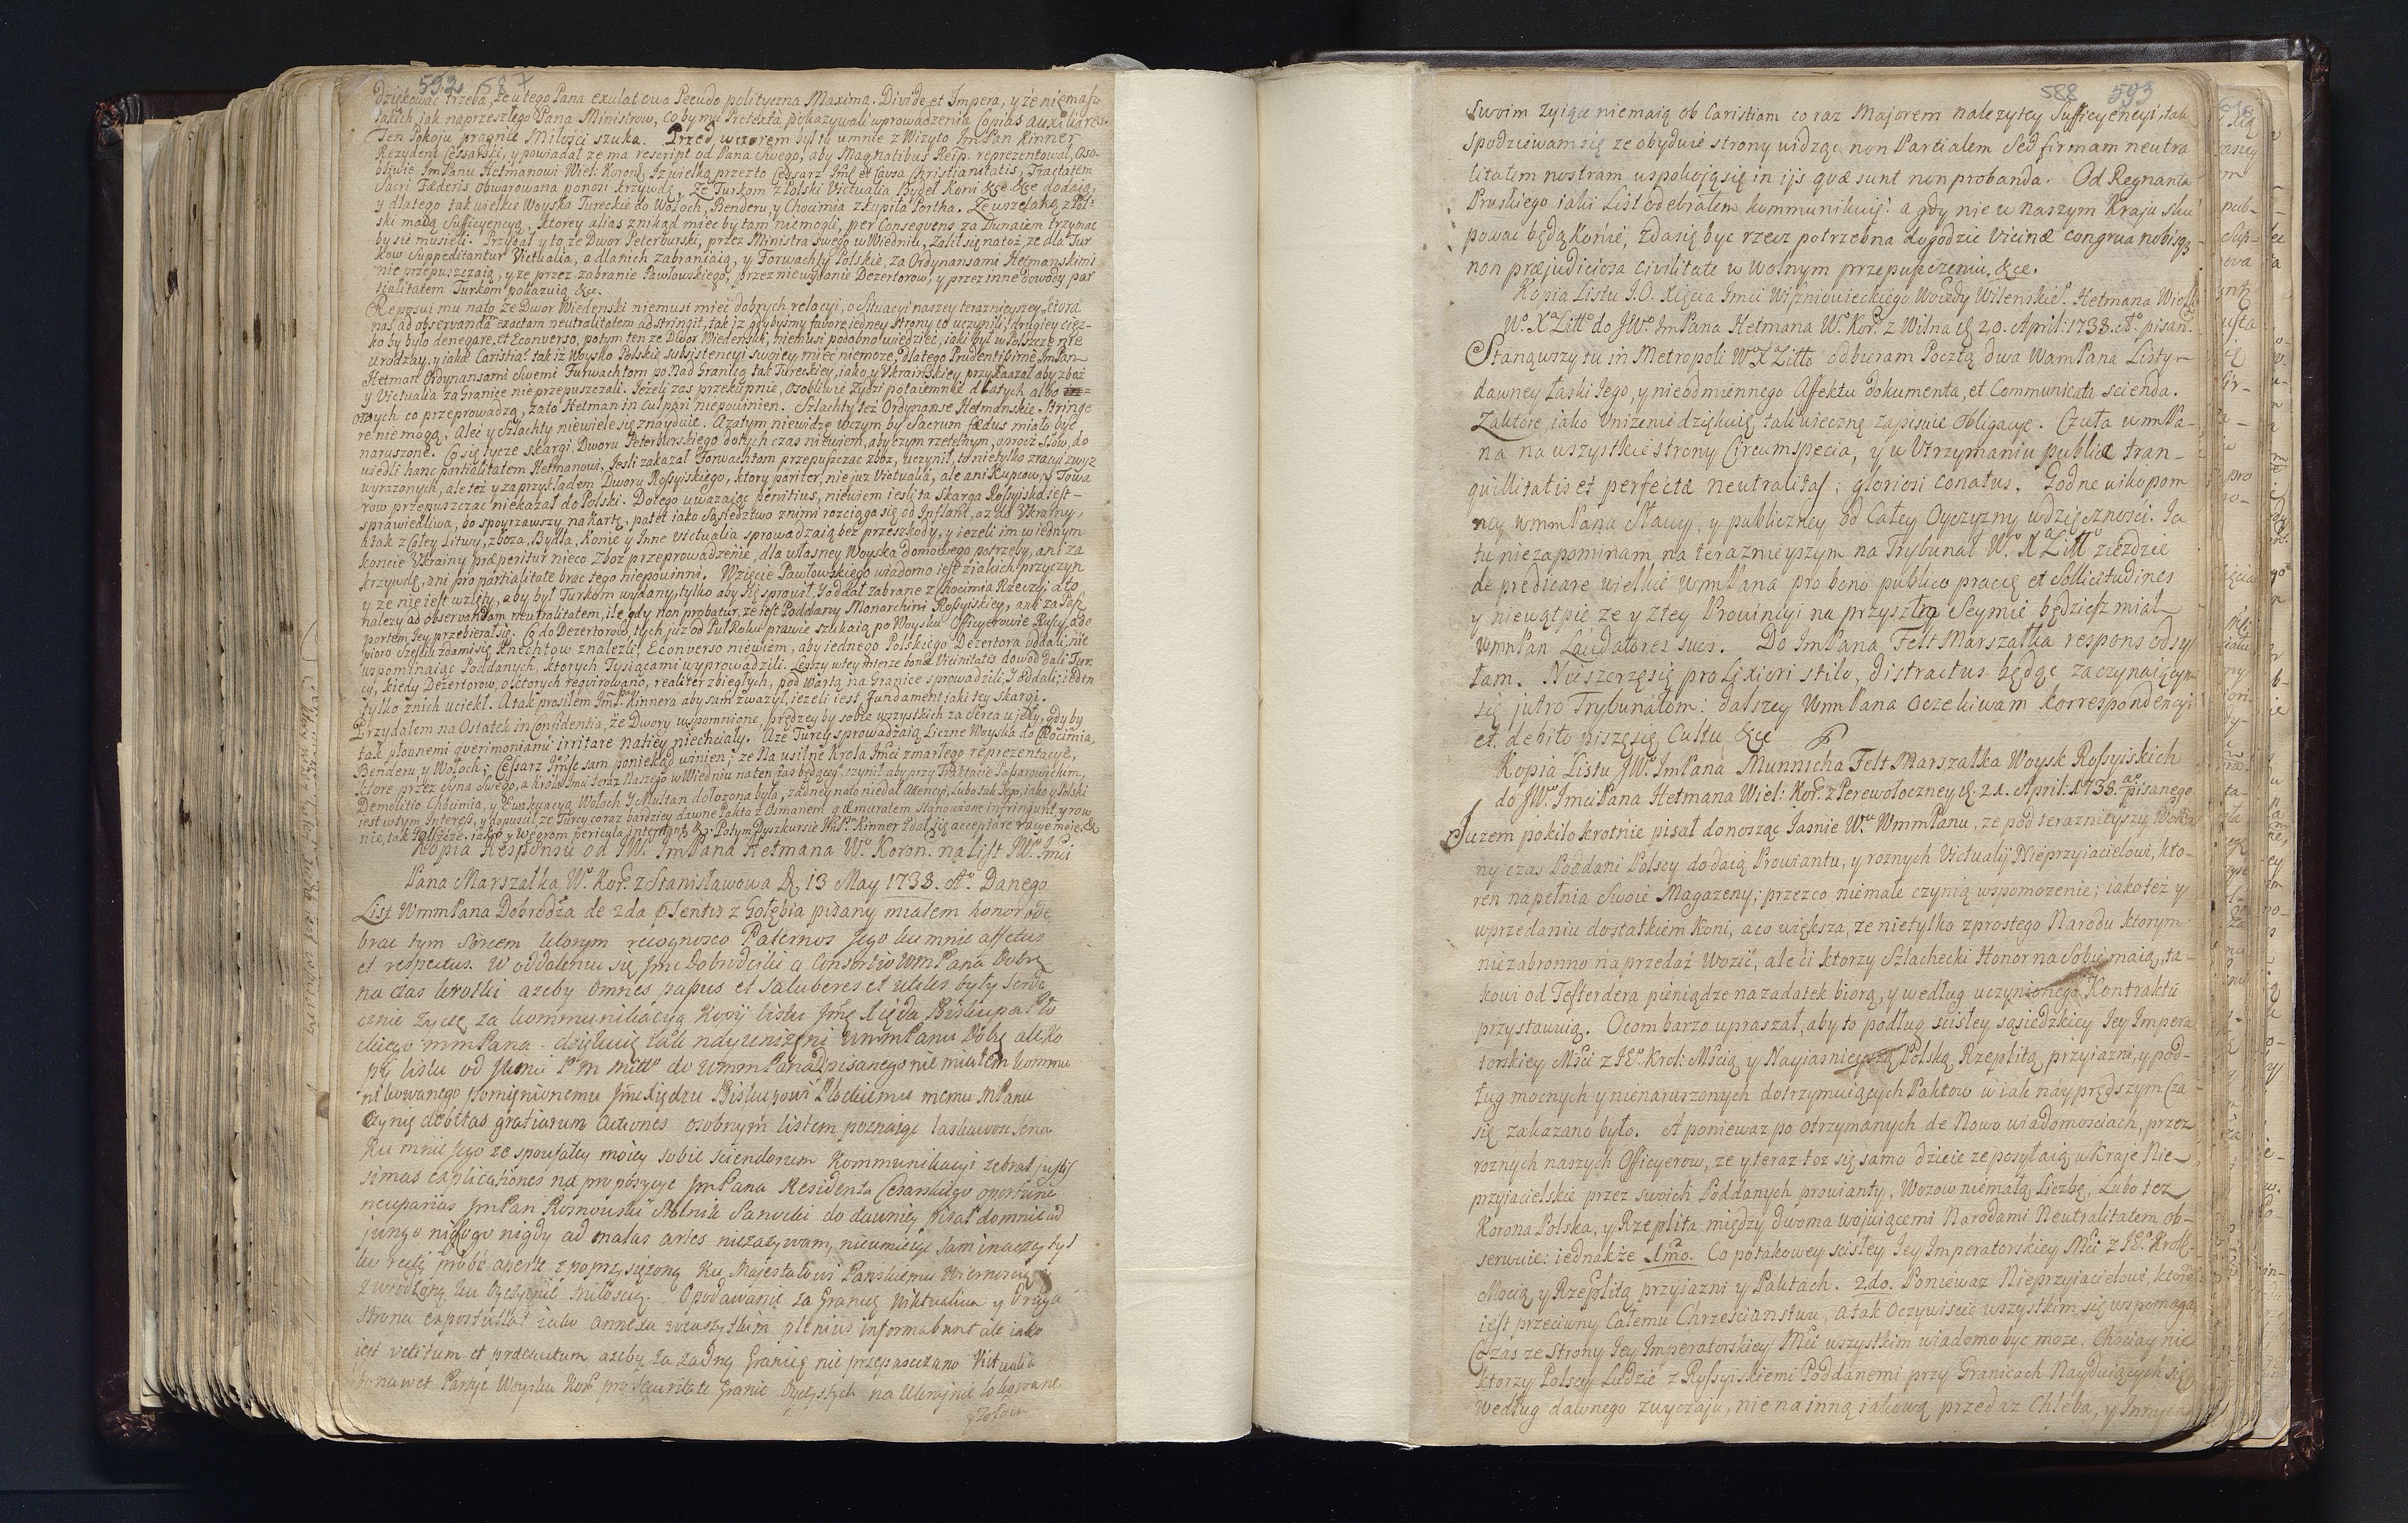 592 587
dziękować trzeba, że u tego Pana exulat owa Pseudo polityczna Maxima. Divide et Impera, y że niemasz
takich jak naprzeszłego Pana Ministrow, co by mu Pretexta pokazywali wprowadzenia Copias auxiliares
Ten Pokoju pragnie Miłości szuka. Przed wczorem był tu umnie z Wizyto ImPan Kinner
Rezydent Cesarski, y powiadał ze ma rescript od Pana swego, aby Magnatibus Reip. reprezentował, Oso-
bliwie ImPanu Hetmanowi Wiel: Koron: Iz wielką przezto Cessarz Imć et Causa Christianitatis, Tractatem
Sacri Fæderis obwarowana ponosi krzywdę, Ze Turkom z Polski Victualia Bydeł Koni &ce &ce dodaią,
y dlatego tak wielkie Woyska Tureckie do Wołoch, Benderu, y Chocimia zkupiła Portha. Ze wszelaką z Pol-
ski maią Sufficyencyą, ktorey alias znikąd mieć by tam niemogli, per Consequens za Dunaiem trzymać
by sie musieli. Przydał y to że Dwor Peterburski, przez Ministra swego w Wiedniu, żalił się nato ze dla Tur
kow Suppeditantur Victualia, a dla nich zabraniaią, y Forwachty Polskie, za Ordynansami Hetmanskimi
nie przepuszczaią, y ze przez zabranie Pawłowskiego, przez niewydanie Dezertorow, y przez inne dowody par
tialitatem Turkom pokazuią &c.
Reposui mu nato że Dwor Wiedenski niemusi mieć dobrych relacyi, o Situacyi naszey teraznieyszey, ktora
nas ad observandam exactam neutralitatem adstringit, tak iz gdybysmy favore iedney strony co uczynili, drugiey cięz-
ko by było denegare, et Econverso, potym ten ze Dwor Wiedenski, niemusi podobno wiedzieć, iaki był w Polszcze nie
urodzay, y iaka Caristia, tak iz Woysko Polskie subsistencyi swoiey mieć niemoze, dlatego Prudentissime ImPan
Hetman Ordynansami swemi Furwachtom po nad Granicą tak Tureckiey, iako y Ukrainskiey przykazał aby zboż
y Victualia za Granice nie przepuszczali. Jeżeli zas przekupnie, osobliwie Zydzi potaiemnie dla tych albo
owych co przeprowadzą, za to Hetman in culpari niepowinien. Szlachty też Ordynanse Hetmanskie stringe
re niemogą, Aleć y Szlachty niewiele się znayduie. A zatym niewidzę wczym by Sacrum fædus miało być
naruszone. Co się tycze skargi Dworu Peterburskiego dotych czas niewiem, aby czym rzetelnym, oprocz słow, do
wiedli hanc partialitatem Hetmanowi. Jesli zakazał Forwachtom przepuszczać zboż, uczynił to nietylko z racyi zwyz
wyrazonych, ale też y za przykładem Dworu Rossyiskiego, ktory pariter, nie juz Victualia, ale ani Kupcow, y Towa
row przepuszczać niekazał do Polski. Do tego uwazaiąc penitius, niewiem iesli ta Skarga Rossyiska iest -
sprawiedliwa, bo spoyrzawszy na Kartę, patet iako Sąsiedztwo z nimi rozciąga się od Inflant, az do Ukrainy,
ktak z całey Litwy, zboża, Bydła, Konie y Inne victualia sprowadzaią bez przeszkody, y iezeli im w iednym
koncie Ukrainy præperitur nieco Zboż przeprowadzenie, dla własney Woyska domowego potrzeby, ani za
krzywdę, ani pro partialitate brać tego niepowinni. Wzięcie Pawłowskiego wiadomo iest z iakich przyczyn
y ze nie iest wzięty, aby był Turkom wydany, tylko aby się sprawił, y oddał zabrane z Chocimia Rzeczy, a to
nalezy ad observandam neutralitatem, ile gdy non probatur, ze iest Poddany Monarchini Rossyiskiey, ani za Pasz
portem Jey przebierał się. Co do Dezertorow, tych juz od Puł Roku prawie szukaią po Woysku Officyerowie Ruscy, a do
pioro sześciu zdami się Knechtow znalezli. Econverso niewiem, aby iednego Polskiego Dezertora oddali, nie
wspominaiąc Poddanych, ktorych Tysiącami wyprowadzili. Lepszy w tey mierze bonæ Vicinitatis dowod dali Tur
cy, kiedy Dezertorow, o ktorych reqvirowano, realiter zbiegłych, pod Wartą na Granice sprowadzili, y oddali, ieden
tylko z nich uciekł. A tak prosiłem ImPa Kinnera aby sam zwazył, iezeli iest Fundament iaki tey skargi.
Przydałem na Ostatek in Confidentia, że Dwory wspomnione, prędzey by sobie wszystkich za Serca ujęły, gdy by
tak płonnemi qverimoniami irritare natiey niechciały. A że Turcy sprowadzaią Liczne Woyska do Chocimia,
Benderu, y Wołoch; Cessarz Imśe sam poniekąd winien; ze Na usilne Krola Imći zmarłego reprezentacye,
ktore przez Syna Swego, a Krola Imci teraz Naszego w Wiedniu na ten czas będącego, czynił aby przy Traktacie Passarowickim,
Demolitio Chocimia, y Ewakuacya Wołoch y Multan dołozona była, zadney nato niedał Attencyi, Lubo tak Jego, iako y Polski
iest wtym Interess, y dopuścił, ze Turcy coraz bardziey dawne Pakta z Osmanem y Amuratem, stanowione infringunt y row
nie, tak Polszcze, iako y Węgrom pericula intentant. &c. Po tym Dyszkursie ImP. Kinner zdał się acceptare racye moie &c
Kopia Responsu od JW. ImPana Hetmana Wo Koron: na List JWo Imći
Pana Marszałka Wo Kor: z Stanisławowa D. 13 May 1738. Ao Danego
List WmmPana Dobrodźa de 2da præsentis z Gołębia pisany miałem honor ode
brac tym sercem ktorym recognosco Paternos Jego ku mnie affectus
et respectus. W oddaleniu się Jmci Dobrodziki a Consortio WmPana Dobr.
na czas krotki azeby omnes passus et saluberes et utiles były serde
cznie zycę za kommunikacyą Kopij listu Jmć Xiędza Biskupa Pło
ckiego mmPana dziękuię tak nayunizeni WmmPanu Dobr. ale Ko
pij listu od Jmci P m mitto do WmmPana pisanego nie miałem kommu
nikowanego pomięnionemu Jmci Xiędzu Biskupowi Płockiemu memu mPanu
czynię debitas gratiarum actiones osobnym listem poznaiąc laskawosc Jego
Ku mnie Jego ze spousałey moiey sobie sciendorum Kommunikacyi zebrał justis
simas explicationes na propozycye JmPana Residenta Cesarskiego oportune
necuparias JmPan Rosnowski Stolnik Sanocki do dawniey pisał do mnie ad
jungo nikogo nigdy ad malas artes niezazywam, nieumieiąc sam inaczey tyl
ko rectę probe aperte z poprzysięzoną Ku Majestatowi Panskiemu Wiernoscią y
z wrodzoną ku Oyczyznie miłością. O podawanie za Granicę Wiktualiow y Druga
Strona expostulat iako annexa wewszystkim plenius informabunt ale iako
iest vetitum et præcautum azeby za zadną Granicę nie przepasczano Victualia
bo nawet Partye Woyska Kor: pro securitate Granic Oyczystych na Ukrainie lokowane
y Zołdem
588 593
Swoim zyiące niemaią ob Caristiam co raz Majorem nalezytey Sufficyencyi, tak
Spodziewam się ze obydwie strony widząc non Partialem sed firmam neutra
litatem nostram uspokoią się in ijs quæ sunt non probanda. Od Regnanta
Pruskiego iaki List odebrałem kommunikuię: a gdy nie w naszym Kraju sku
pować będą Konie, zda się być rzecz potrzebna dogodzic vicinæ congrua nobisq3
non præjudiciosa civilitate w wolnym przepuszczeniu. &ce.
Kopia Listu J.O. Xięcia Imci Wiszniowieckiego Wojewody Wilenskie: Hetmana Wielk:
Wo Xa Litto do JWo ImPana Hetmana Wo Kor: z Wilna D. 20. April: 1738. Ao pisan:
Stanąwszy tu in Metropoli WoXLitto odbieram Pocztą dwa WamPana Listy -
dawney Łaski Jego, y nieodmiennego Affektu dokumenta, et Communicata scienda.
Zaktore, iako Unizenie dziękuię, tak wieczne zapisuie Obligacye. Czuła WmPa-
na na wszystkie strony Circumspecia, y w Utrzymaniu publicæ tran-
quillitatis et perfectæ neutralitas; gloriosi conatus. Godne wikopom
ney WmmPana Sławy, y publiczney od całey Oyczyzny wdzięcznosci. Ja
tu niezapominam na teraznieyszym na Trybunał Wo Xa Litto zieździe
de predicare wielkie WmPana pro bono publico pracię et Sollicitudines
y niewątpie ze y z tey Prowincyi na przyszłą Seymie będziesz miał
WmPan Laudatores suos. Do ImPana Felt Marszałka respons odsy
łam. Nie szerzę się prolixiori stilo, distractus będąc zaczynaiącym
się jutro Trybunałom: dalszey WmPana oczekiwam Korrespondencyi
et debito piszę się Cultu &ce
Kopia Listu JWo ImPana Munnicha Felt Marszałka Woysk Rossyiskich
do JWo ImciPana Hetmana Wiel: Kor: z Perewołoczney D. 21. April: 1738. ao pisanego
Juzem pokilokrotnie pisał donosząc Jasnie Wu WmmPanu, ze pod teraznieyszy Woien
ny czas Poddani Polscy dodaią Prowiantu, y roznych Victualij Nieprzyiacielowi, kto-
ren napełnia Swoie Magazeny; przezco niemałe czynią wspomozenie; iako też y
wprzedaniu dostatkiem Koni, a co większa, ze nietylko z prostego Narodu ktorym
niezabronno na przedaż Wozić, ale ci ktorzy Szlachecki Honor na Sobie maią, ta-
kowi od Tefterdera pieniądze na zadatek biorą, y według uczynionego Kontraktu
przystawuią. Ocom barzo upraszał, aby to podług scisłey sąsiedzkiey Jey Impera
torskiey Mści z JEo Krol: Mścią y Nayiasnieyszą Polską Rzeplitą przyiazni, y pod-
ług mocnych y nienaruszonych dotrzymuiących Paktow w iak nayprędszym Cza
się zakazano było. A poniewaz po otrzymanych de Novo wiadomosciach, przez
roznych naszych Officyerow, ze y teraz toz się samo dzieie ze posyłaią w Kraje Nie-
przyiacielskie przez swoich Poddanych prowianty, Wozow niemałą Liczbę, Lubo tez
Korona Polska, y Rzeplita między dwoma wojuiącemi Narodami Neutralitatem ob-
serwuie: iednakże 1mo. Co potakowey scisłey Jey Imperatorskiey Mści z JEo Krol:
Mścią y Rzeplitą przyiazni y Paktach. 2do. Poniewaz Nieprzyiacielowi, ktory
iest przeciwny Całemu Chrzescianstwu, a tak Oczywiscie wszystkim się wspomaga
Co zas ze strony Jey Imperatorskiey Mści wszystkim wiadomo być moze, Chociay nie
ktorzy Polscy Ludzie z Rossyiskiemi Poddanemi przy Granicach Nayduiących się
według dawnego zwyczaju, nie na inną iakową przedaz Chleba, y Innych